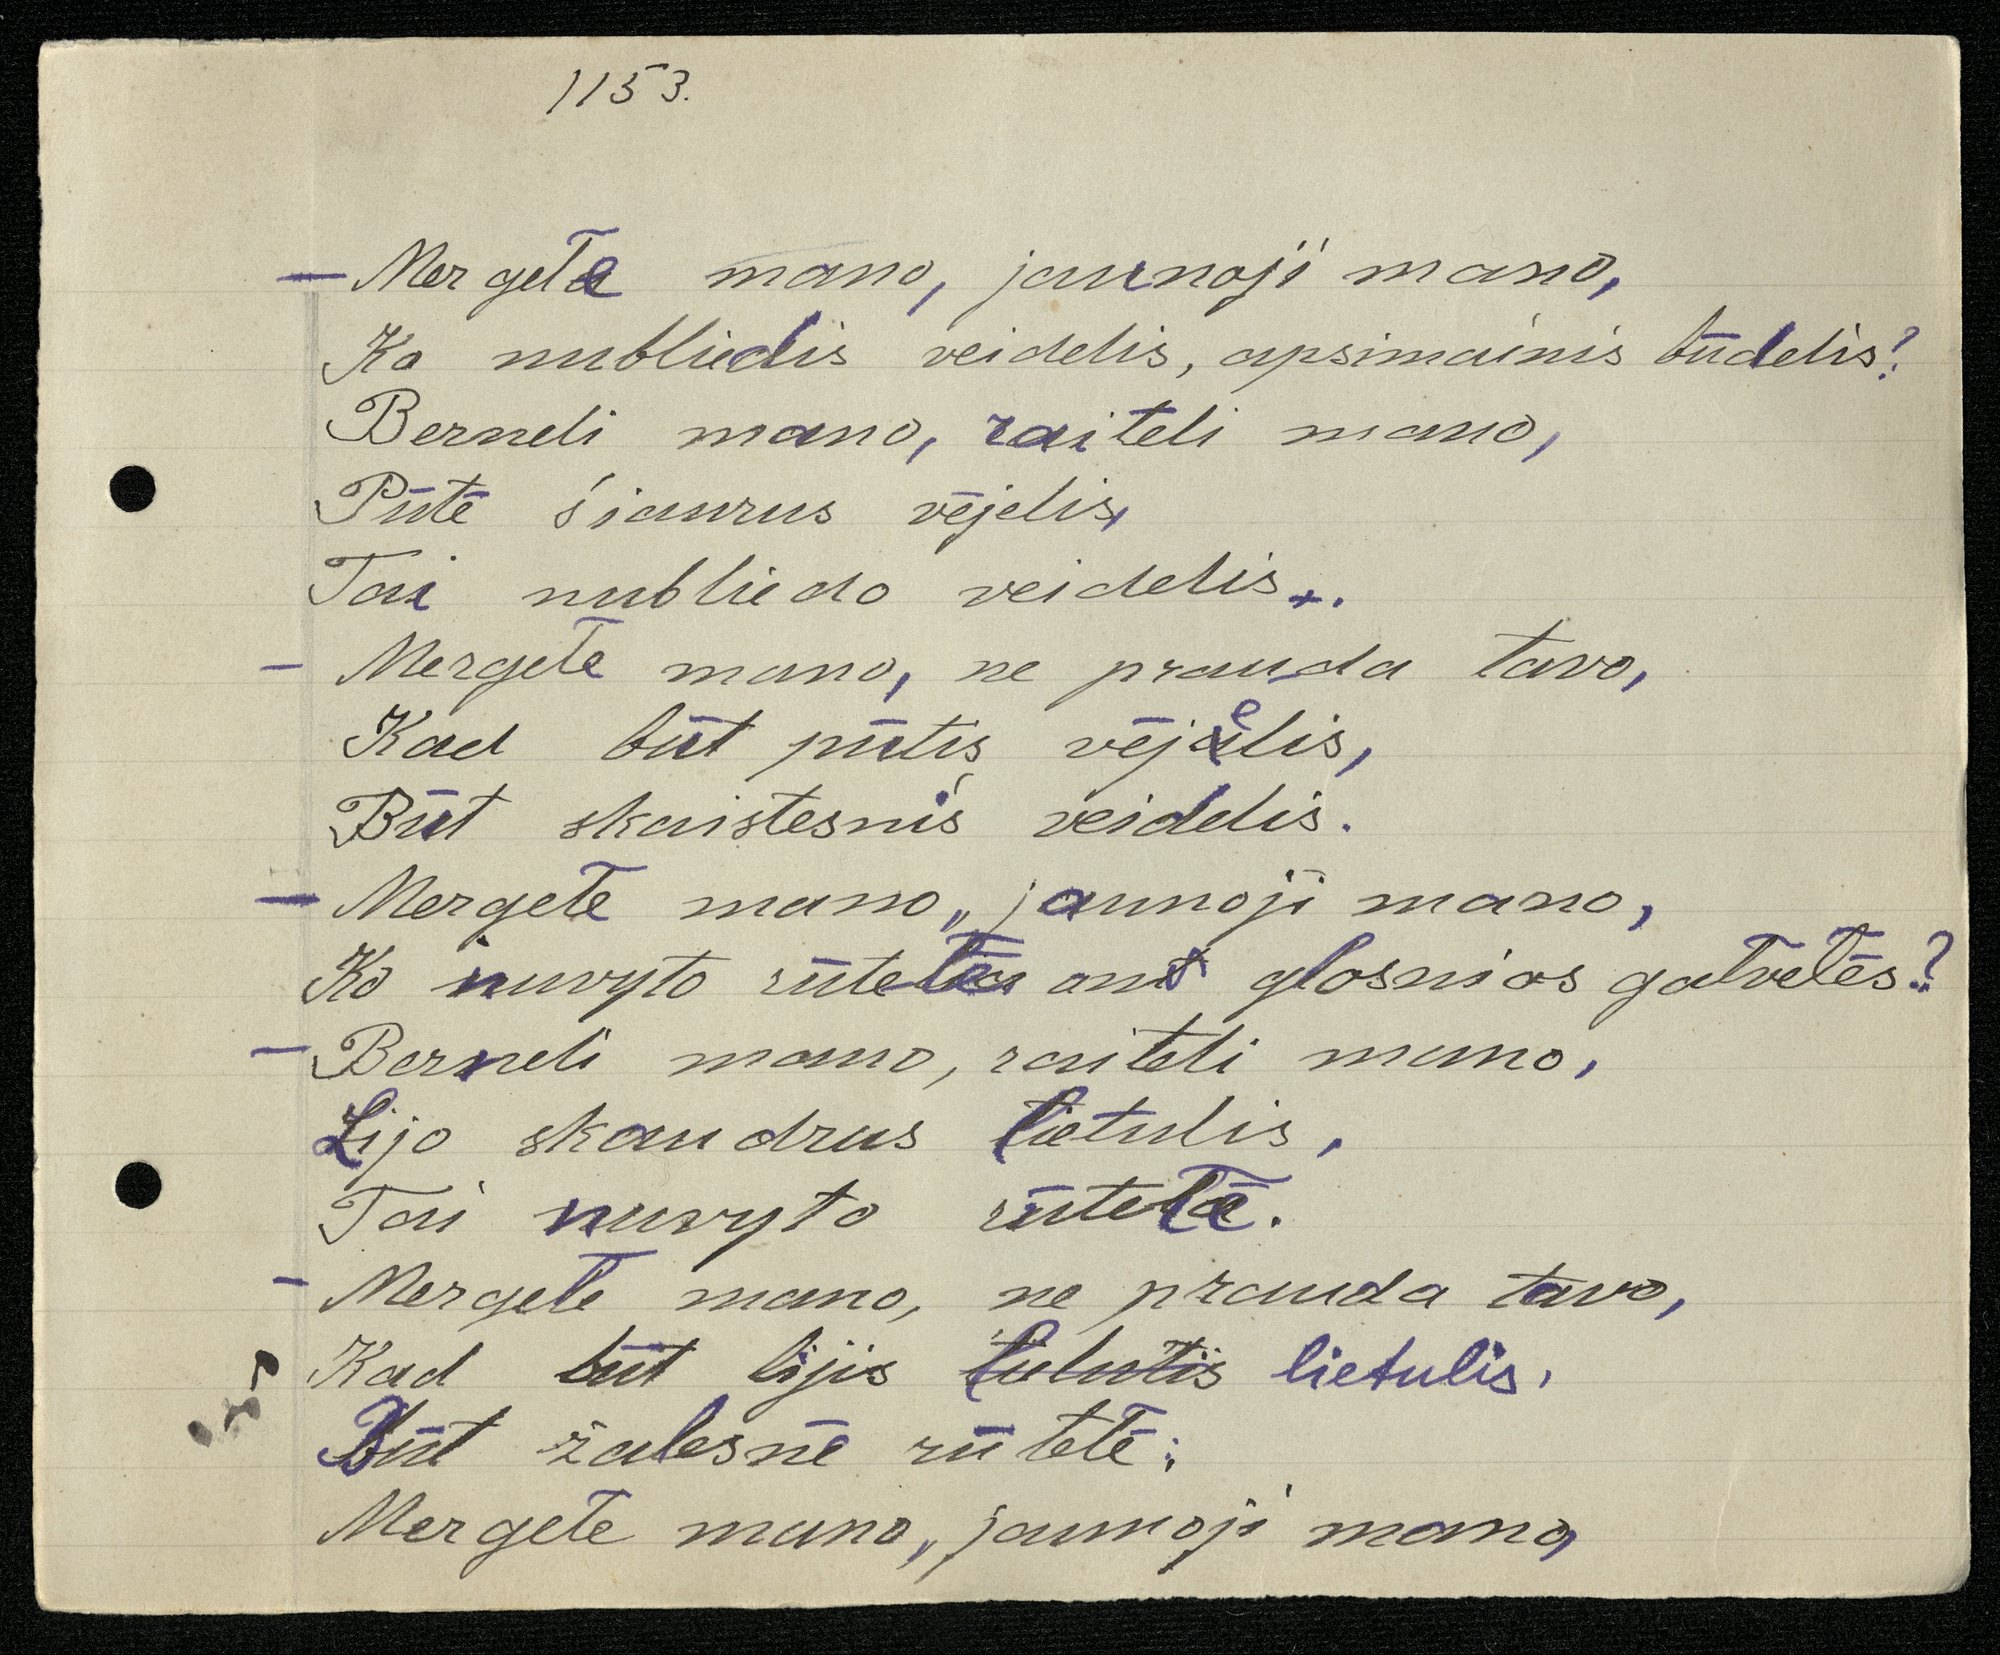 1153.
— Mergele mano, jaunoji mano,
Ko nubliedis veidelis, apsimainis būdelis?
Berneli mano, raiteli mano,
Pūtė šiaurus vėjelis,
Tai nubliedo veidelis..
— Mergele mano, ne prauda tavo,
Kad būt pūtis vėjelis,
Būt skaistesnis veidelis.
— Mergele mano, jaunoji mano,
Ko nuvyto rūtelės ant glosnios galvelės?
— Berneli mano, raiteli mano,
Lijo skaudrus lietulis,
Tai nuvyto rūtelė.
— Mergele mano, ne prauda tavo,
Kad būt lijis lietulis,
Būt žalesnė rūtelė;
Mergele mano, jaunoji mano,